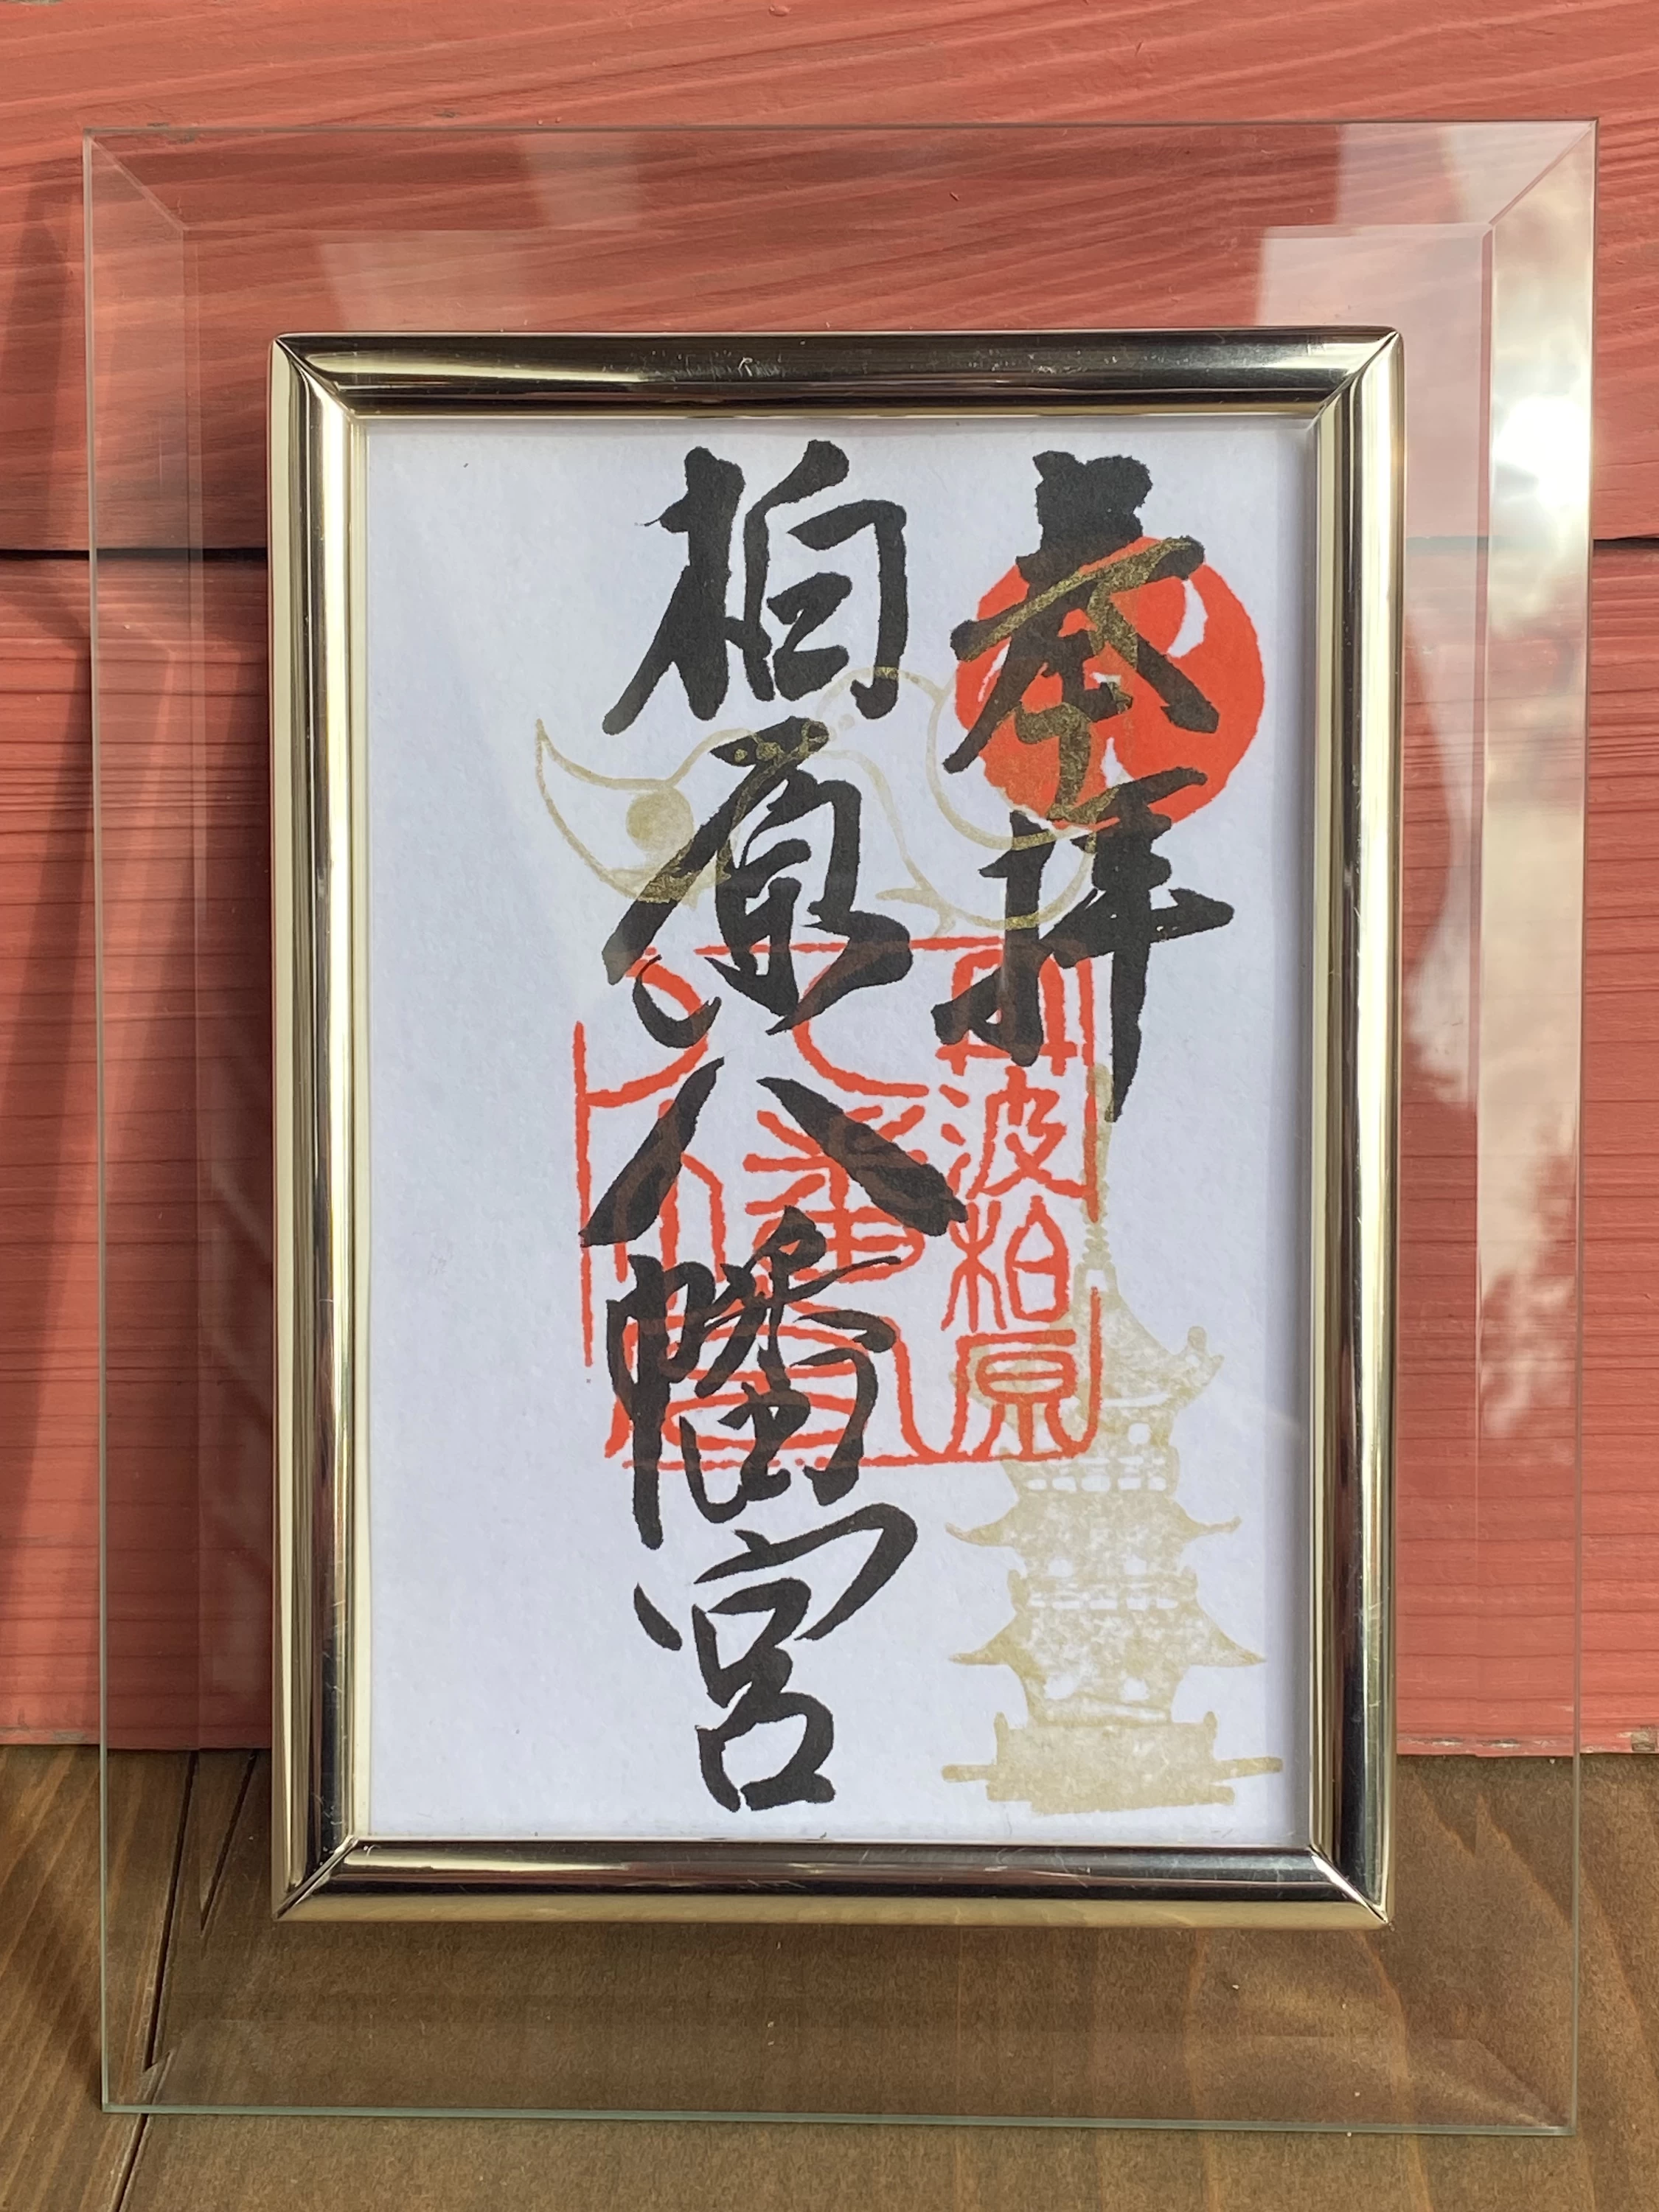 奉拝
柏原八幡宮
丹波柏原
八幡